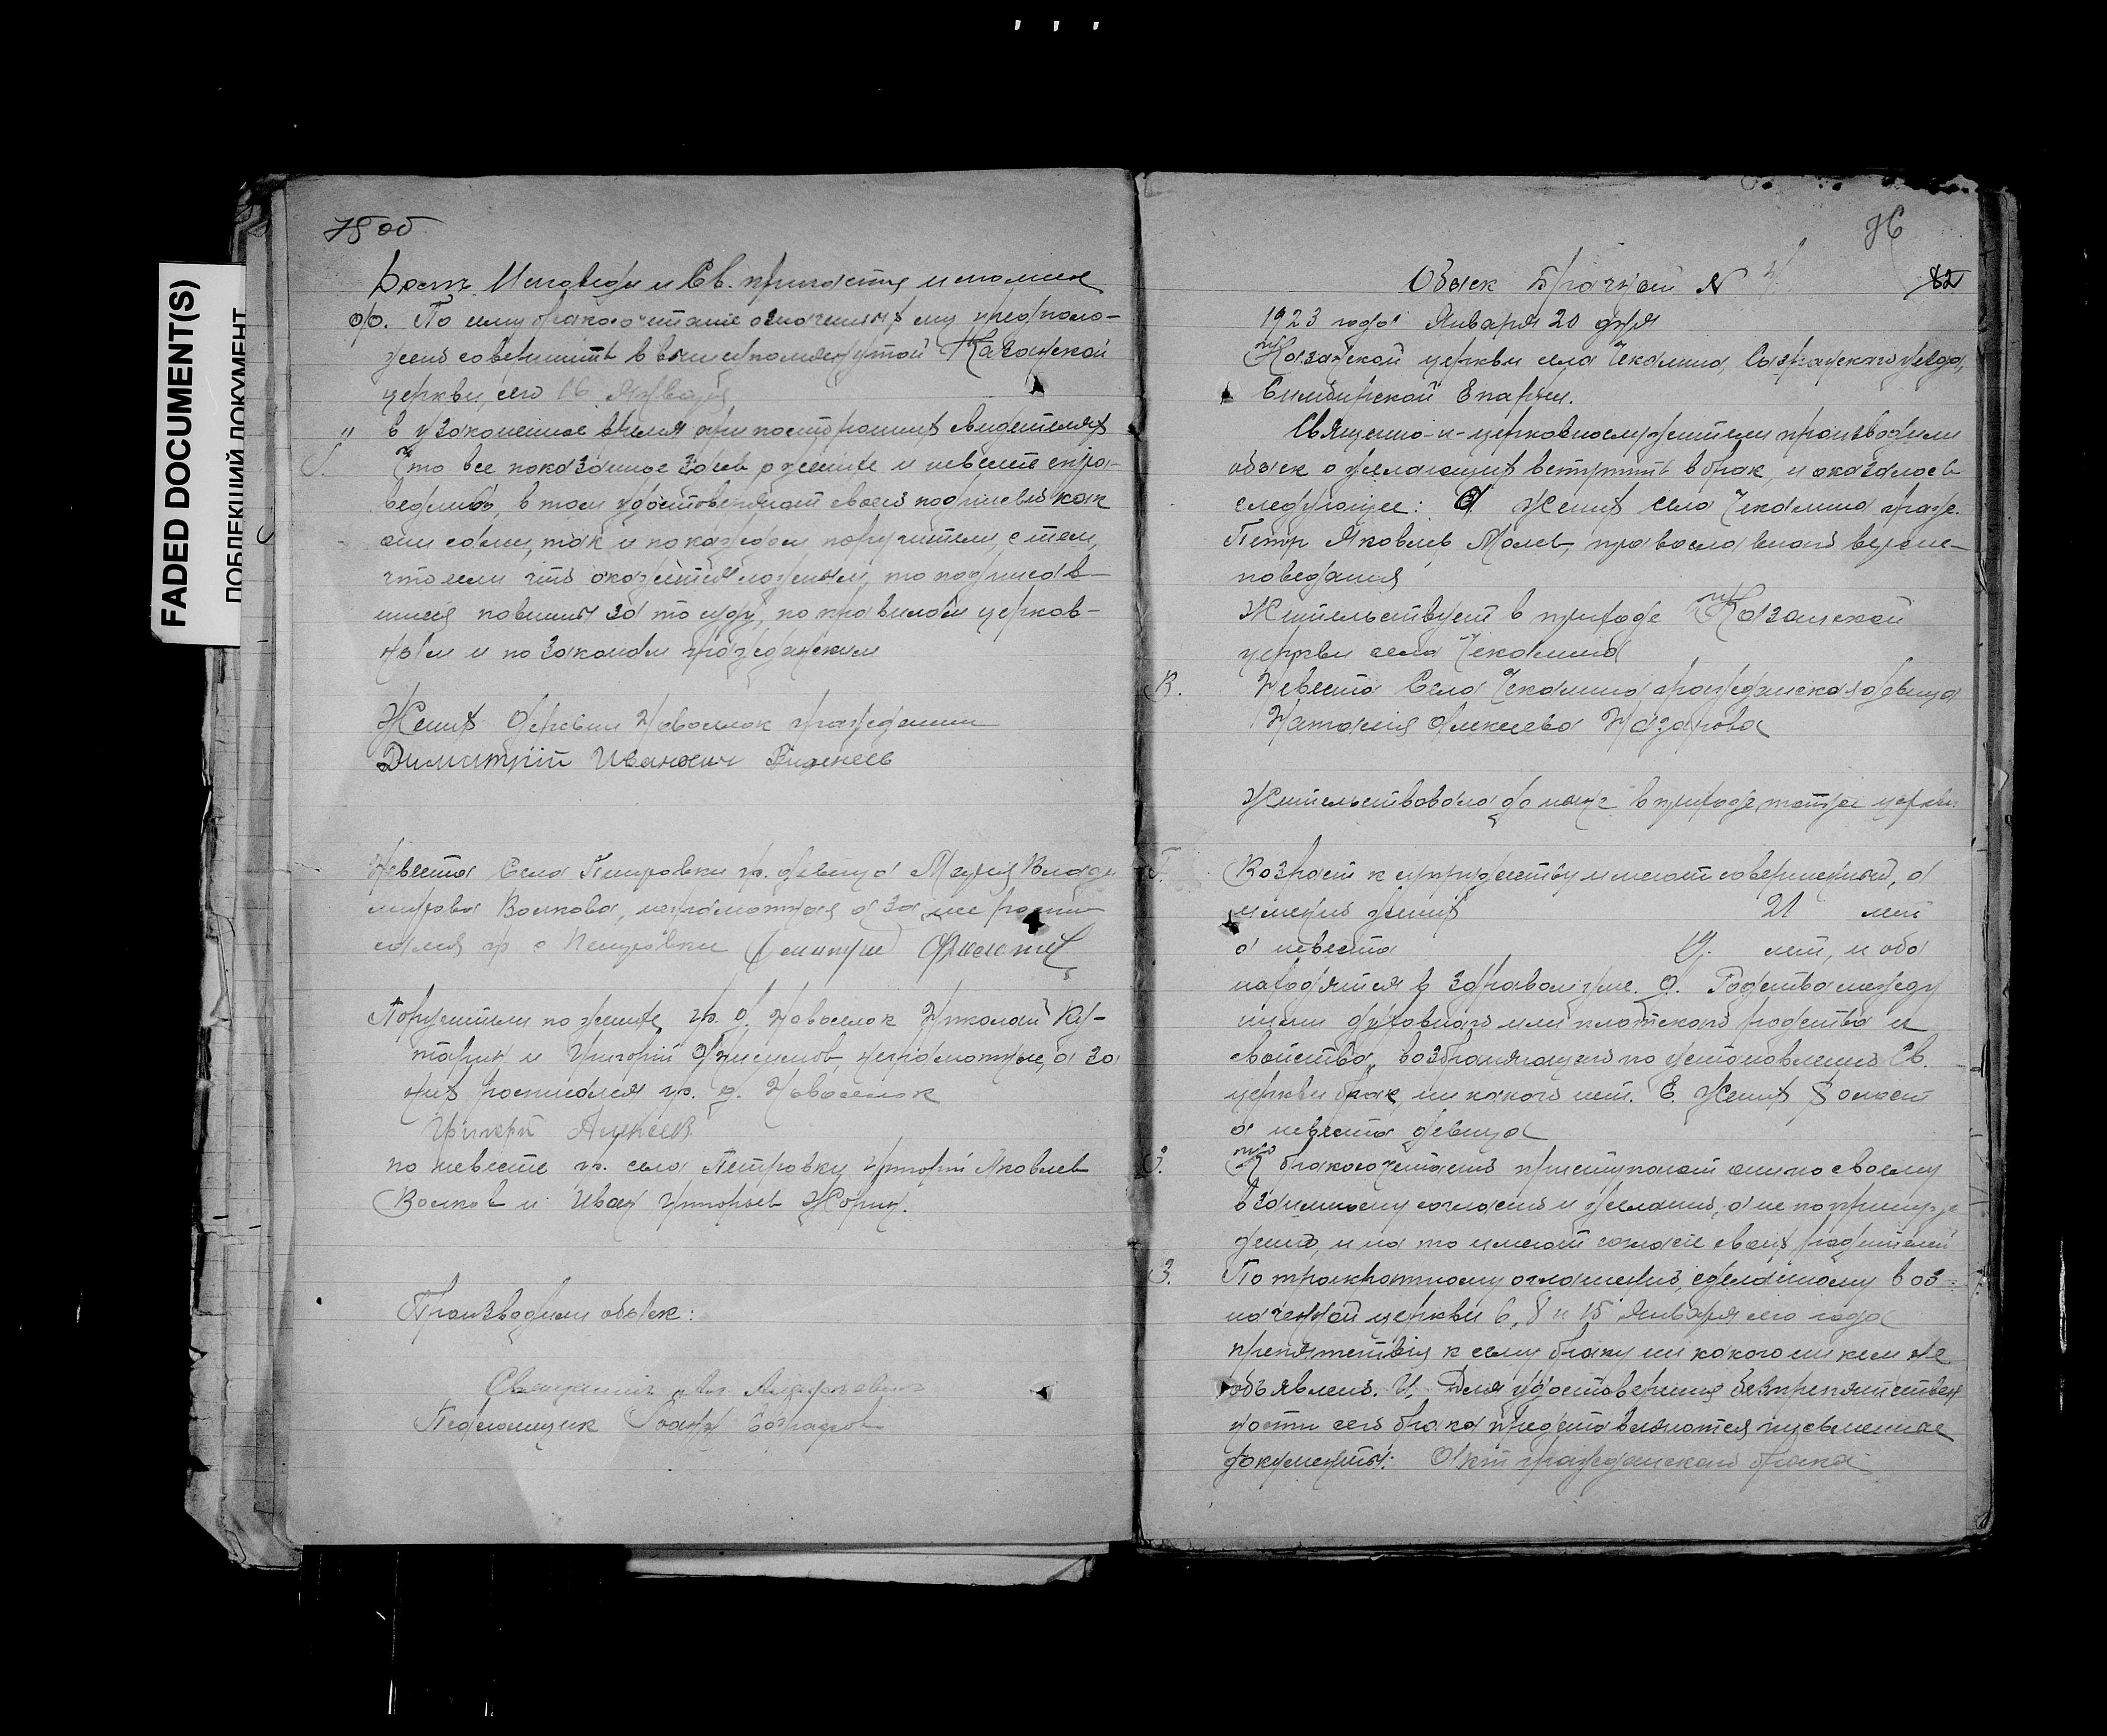 FADED DOCUMENT(S)
ПОБЛЕКШИЙ ДОКУМЕНТ
75 об
Долг Исповеди и Св. причастия исполнен
Ѳ. По сему бракосочетание означенных лиц предполо-
жено совершить в вышеупомянутой Казанской
церкви, сего 16 Января
" в узаконенное время при посторонних свидетелях
I. Что все показанное здесь о женихе и невесте спра-
ведливо, в том удостоверяют своею подписью как
они сами, так и по каждом поручители, с тем,
что если что окажется ложным, то подписав-
шиеся повинны за то суду, по правилам церков-
ным и по законам гражданским
Жених деревни Новоселок гражданин
Димитрий Иванович
Невеста Села Петровки гр. девица Мария Влади
мирова Волкова, неграмотная а за нее распи
сался гр. с Петровки
Поручители по женихе гр. д. Новоселок Николай
и Григорий Анисимов, неграмотные, а за
них росписался гр. д. Новоселок
Григорий Алексеев
по невесте гр. села Петровки Григорий Яковлев
Волков и Иван Григорьев Жорин.
Производили обыск:
Священник
Псаломщик Иоанн
76
Обыск Брачный № 4
82
1923 года Января 20 дня
Казанской церкви села Чекалина, Сызранского уезда,
Симбирской Епархии.
Священно-и-церковнослужители производили
обыск о желающих вступить в брак, и оказалось
следующее: А Жених села Чекалина гражд.
Петр Яковлев Малев, православного вероис-
поведания
Жительствует в приходе Казанской
церкви села Чекалина
В. Невеста Села Чекалина гражданская девица
Наталия Алексеева Назарова
Жительствовала до ныне в приходе тойже церкви
Г. Возраст к супружеству имеют совершенный, а
именно жених 21 лет
а невеста 19. лет, и оба
находятся в здравом уме. Д. Родства между
ними духовного или плотского родства и
свойства, возбраняющего по установлению Св.
церкви брак, никакого нет. Е. Жених холост
а невеста девица
К бракосочетанию приступают они по своему
взаимному согласию и желанию, а не по принуж
дению, и на то имеют согласие своих родителей
З. По троекратному оглашению, сделанному в оз-
наченной церкви 6, 8 и 15 Января сего года
препятствия к сему браку никакого никем не
объявлено. И, Для удостоверения безпрепятствен
ности сего брака представляются письменные
документы: Акт гражданского брака